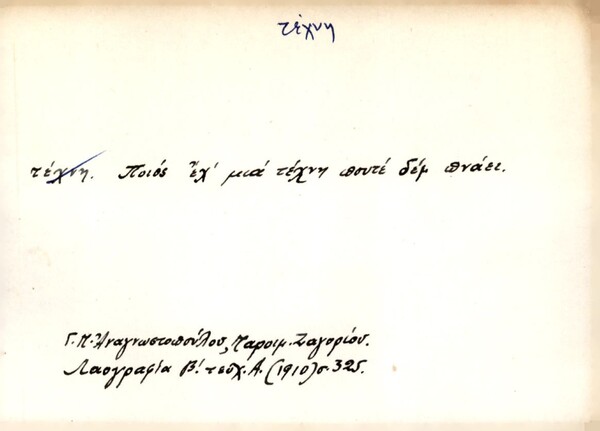 τέχνη
τέχνη. Ποιός ἔχ' μιά τέχνη πουτέ δέμ πνάει.
Γ.Π. Ἀναγνωστοπούλου, Παροιμ. Ζαγορίου.
Λαογραφία Β! τεσχ. Α. (1910) σ. 325.